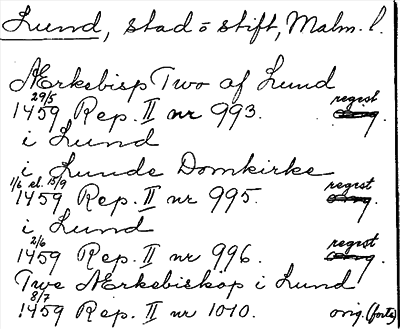 Lund, stad o stift, Malm. l.
Ærkebisp Twe af Lund
29/5
1459 Rep. II nr 993. regist
i Lund
i Lunde Domkirke
1/6 el. 15/9
1459 Rep. II nr 995. regist
i Lund
2/6
1459 Rep. II nr 996. regist
Twe Ærkebiskop i Lund
8/7
1459 Rep. II nr 1010. orig. (forts)